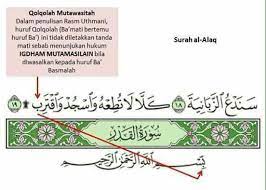 Qolqolah Mutawasitah
Dalam penulisan Rasm Uthmani,
huruf Qolqolah (Ba'mati bertemu
huruf Ba') ini tidak diletakkan tanda
mati sebab menunjukan hukum
IGDHAM MUTAMASILAIN bila
diwasalkan kepada huruf Ba'
Basmalah
Surah al-Alaq
سَنَدْعُ ٱلزَّبَانِيَةَ ١٨ كَلَّا لَا تُطِعْهُ وَٱسْجُدْ وَٱقْتَرِب ۩ ١٩
سُورَةُ ٱلْقَدْرِ
بِسْمِ ٱللَّهِ ٱلرَّحْمَٰنِ ٱلرَّحِيمِ